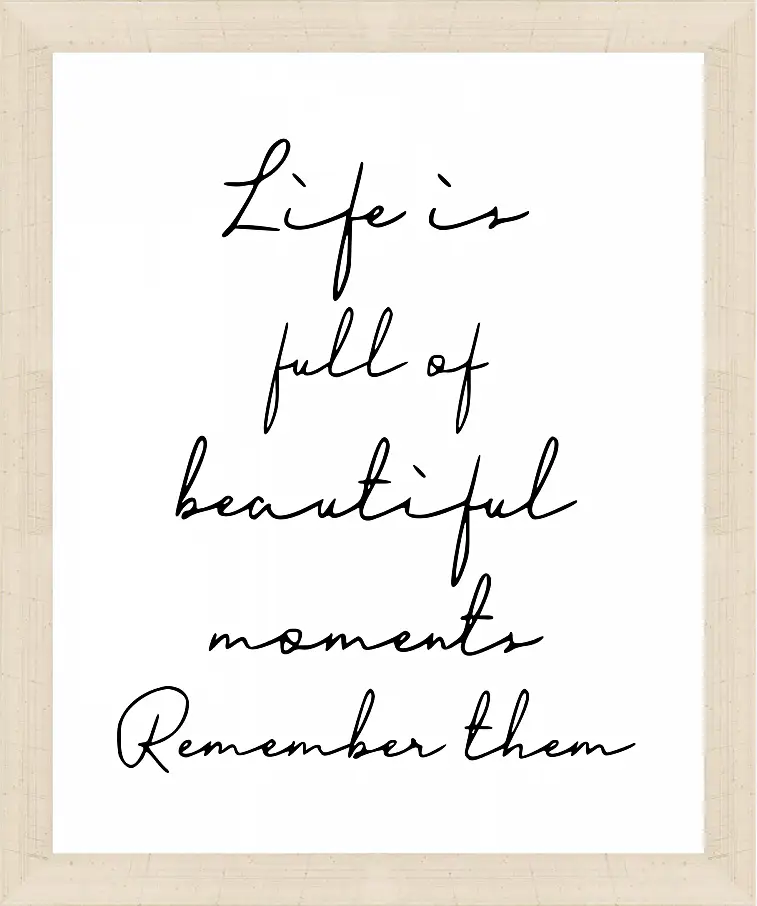 Life is
full of
beautiful
moments
Remember them